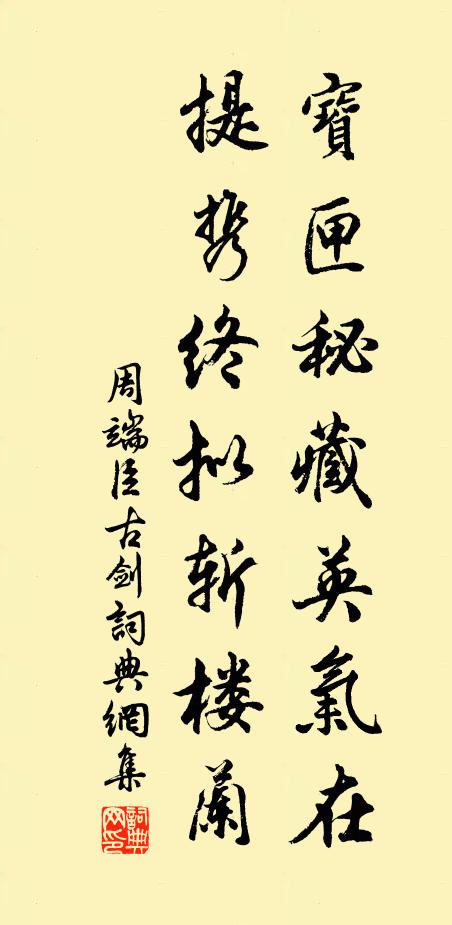 寶匣秘藏英氣在
提携终拟斩楼蘭
周端臣古劍詞典網集
詞典網印